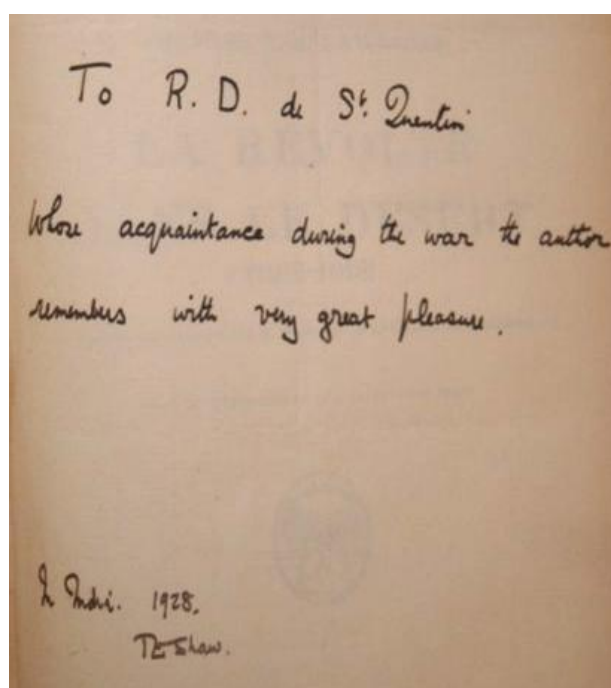 To R. D. de St. Quentin
whose acquaintance during the war the author
remembers with very great pleasure.
LA RÉVOLTE
In India. 1928.
TE Shaw.